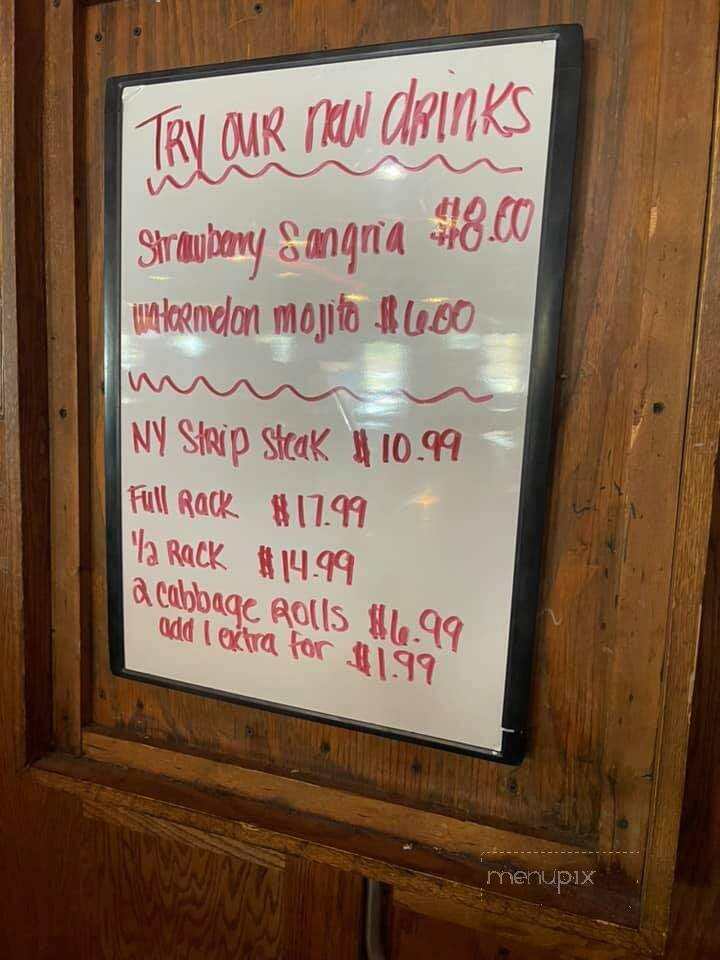 TRY OUR new dRINKS
Strawberry Sangria $8.00
watermelon mojito $6.00
NY Strip Steak $10.99
Full Rack $17.99
1/2 Rack $14.99
2 cabbage Rolls $6.99
add 1 extra for $1.99
menupix